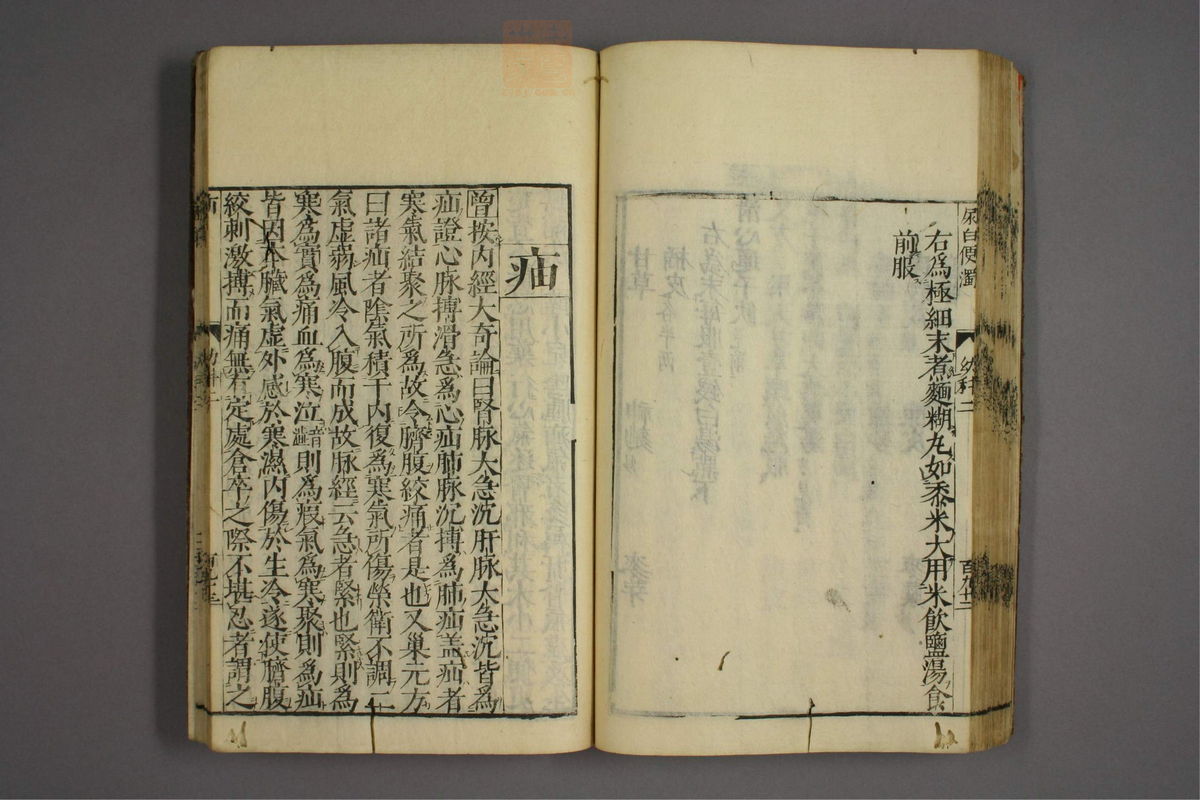 尿白便濁
幼科二
百九十二
右為極細末煮麵糊丸如黍米大用米飲鹽湯食
前服
疝
曾按內經大奇論曰腎脉大急沉肝脉大急沉皆為
疝證心脉搏滑急為心疝肺脉沉搏為肺疝盖疝者
寒氣結聚之所為故令臍腹絞痛者是也又巢元方
曰諸疝者陰氣積于內復為寒氣所傷榮衛不調二
氣虛弱風冷入腹而成故脉經云急者緊也緊則為
寒為實為痛血為寒泣音澁則為瘕氣為寒聚則為疝
皆因本臟氣虛外感於寒濕內傷於生冷遂使臍腹
絞刺激搏而痛無有定處倉卒之際不堪忍者謂之